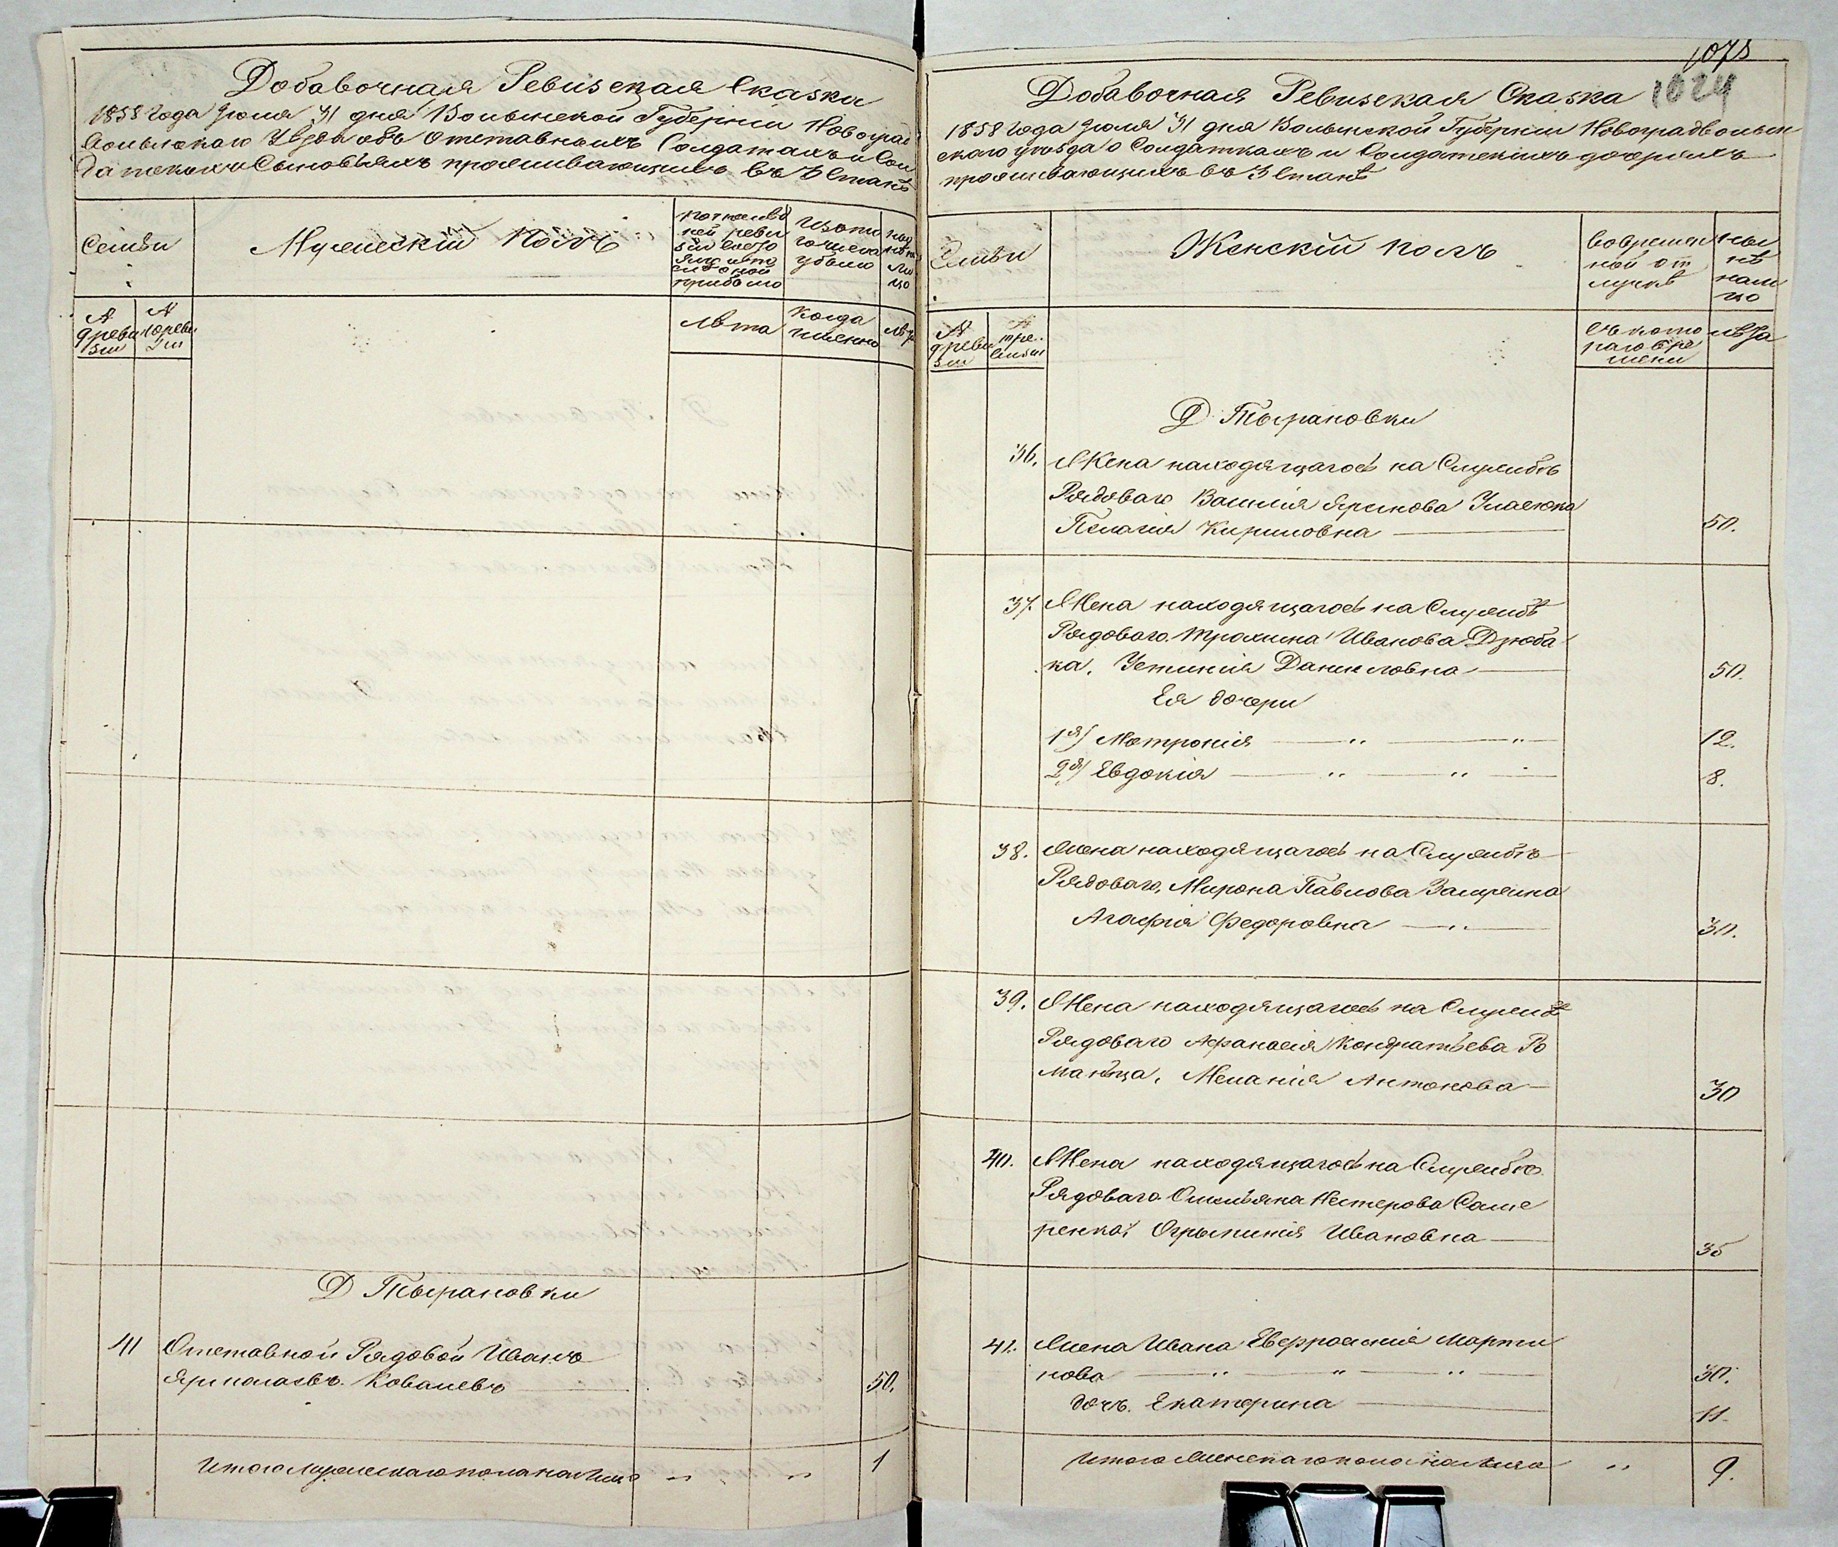 Добавочная Ревизская Сказка
1858 года Іюля 31 дня Волынской Губерніи Новоград
волынскаго Уѣзда объ отставныхъ Солдатахъ и Сол
датскихъ Сыновьяхъ проживающихъ въ 3 Станѣ
Семьи
Мужескій полъ
по послѣд
ней реви
зіи состо
яло и по
оной
прибыло
Изъ то
го числа
убыло
ны
нѣ на
ли
цо
№
9 реви
зіи
№
10 реви
зіи
Лѣта
Когда
именно
Лѣта
Д Тырановки
41 Отставной Рядовой Иванъ
Ярмолаевъ Ковалевъ 50.
Итого мужескаго пола на лицо " " 1
1075
1024
Добавочная Ревизская Сказка
1858 года Іюля 31 дня Волынской Губерніи Новоградволын
скаго уѣзда о Солдаткахъ и Солдатскихъ дочеряхъ
проживающихъ въ 3 Станѣ
Семьи
Женскій полъ
во времен
ной от
лучкѣ
ны
нѣ
нали
цо
№
9 реви
зіи
№
съ кото
раго вре
мени
лѣта
Д Тырановки
36. Жена находящагося на Службѣ
Рядоваго Василія Яримова
Пелагія Кириловна 50.
37. Жена находящагося на Службѣ
Рядоваго Трохима Иванова Дзюба
ка, Устинія Даниловна 50.
Ея дочери
1я) Мотронія " " 12.
2я) Евдокія " " 8.
38. Жена находящагося на Службѣ
Рядоваго, Мирона Павлова
Агафія Федоровна " 30.
39. Жена находящагося на Службѣ
Рядоваго Афанасія Кондратьева Ро
манца, Меланія Антонова 30
40. Жена находящагося на Службѣ
Рядоваго Омельяна Нестерова
Огрыпинія Ивановна 35
41. Жена Ивана Евфросинія Марти
нова " " " 30.
дочь Екатерина 11
Итого женскаго пола на лицо " 9.